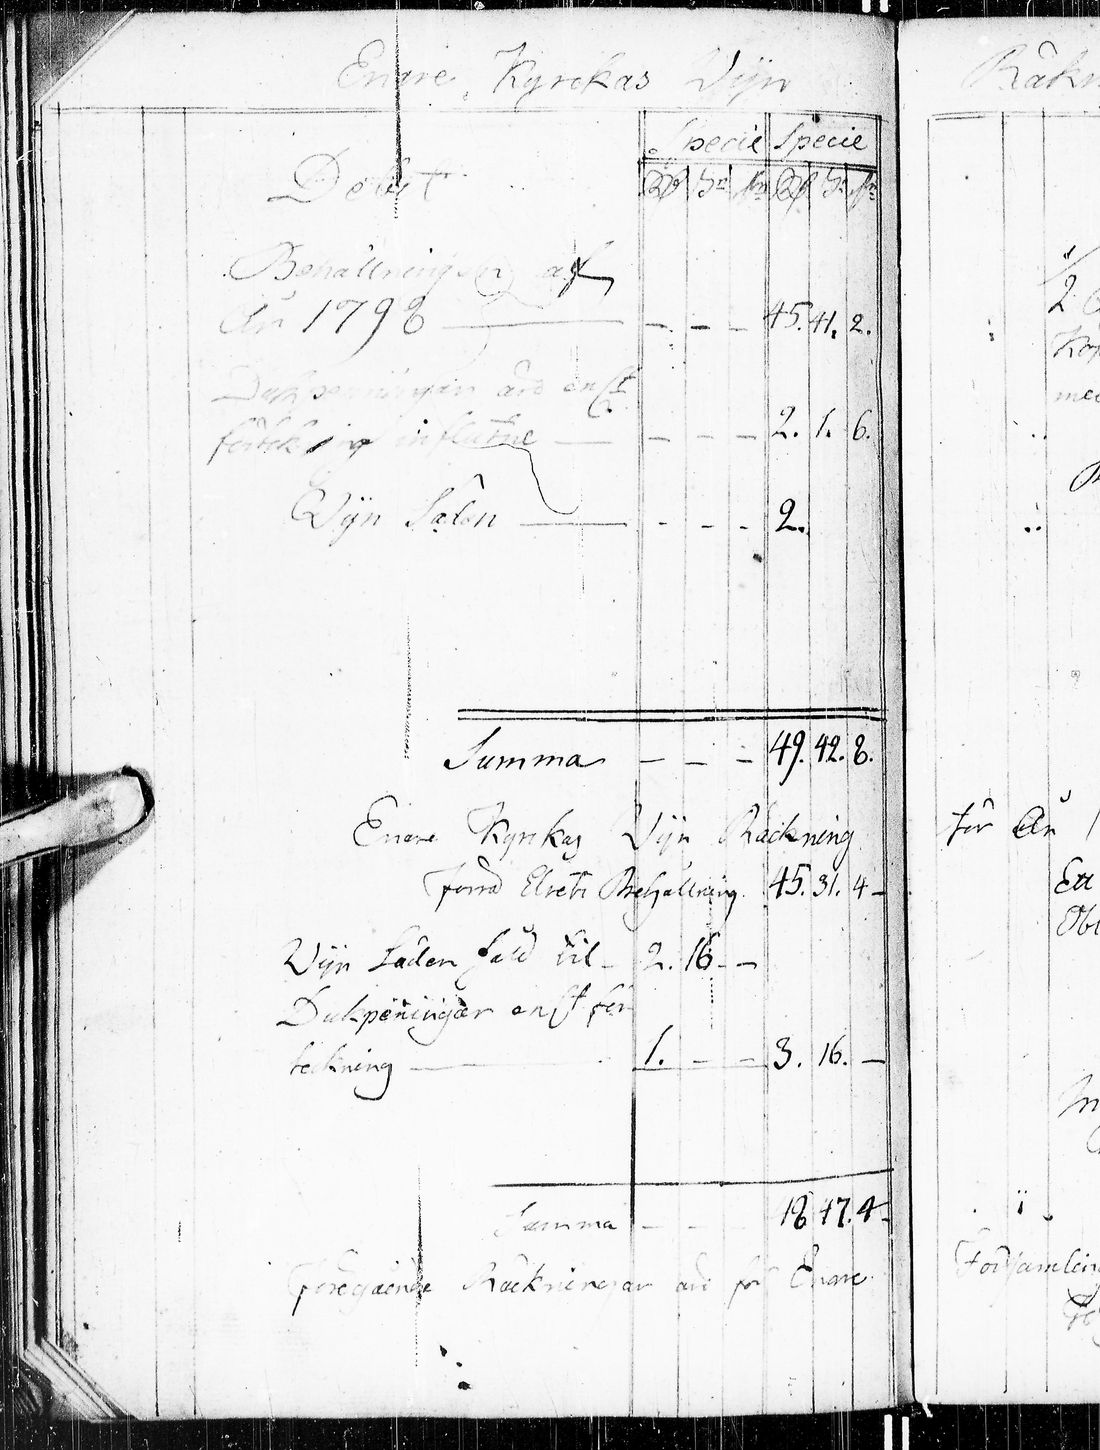 Enare Kyrckas Wijn
Specie Specie
Debet
Rd Sk. Rd Sk.
Behållningen af
År 1798 — — — 45. 41. 2.
Duk penningar äro enl.
förtekning influtne — — — 2. 1. 6.
Wijn Sålen — — — 2.
Summa — — — 49. 42. 8.
Enare Kyrkas Wijn Räckning
förra Arets Behållning 45. 31. 4 —
Wijn Såden såld til — 2. 16 —
Dukpeningar enl. för
teckning — 1. — — 3. 16. —
Summa — — 48 47. 4
Föregående Räkningar äro för Enare
Räkn
för År 1
Ett
Församling